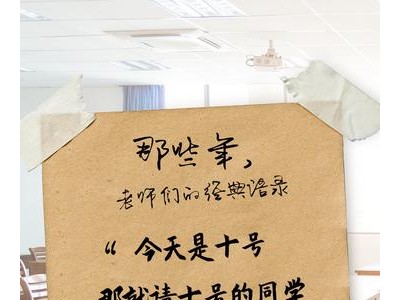 那些年，
老师们的经典语录
“ 今天是十号
那就请十号的同学